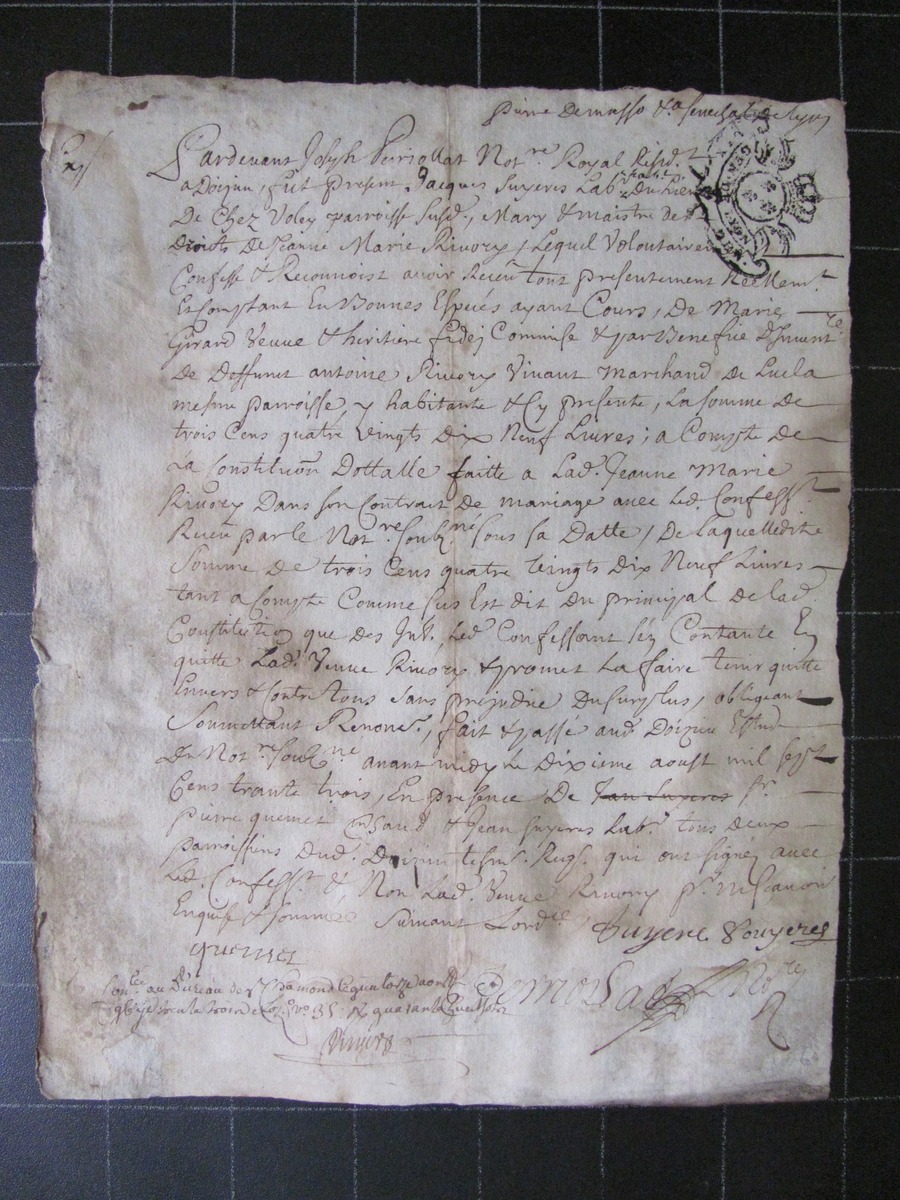 Pardevant Joseph Perriollat Not.re Royal Resid.t
a Doizieu, fut present Jacques Suyeres Lab.r
De Chez Voley parroisse susd., Mary & maistre des
Droits De Jeanne Marie Rivory, Lequel Volontairem
Confesse & Reconnoist avoir Receu tous presentement Reellem.t
Et Comptant En Bonnes Especes ayant Cours, De Marie
Girard Veuve & heritiere fidei Commise & par Benefice D'Invent.re
De Deffunct antoine Rivory Vivant Marchand de
mesme parroisse, y habitante & Cy presente, La somme De
trois Cens quatre Vingts Dix Neuf Livres; a Compte De
La Constitu͠on Dottalle faitte a Lad. Jeanne Marie
Rivory Dans son Contrait de mariage avec Led. Confess.t
Receu par le Not.re soub.ne sous sa Datte, De Laquelle dite
Somme De trois Cens quatre Vingts Dix Neuf Livres
tant a Compte Comme sus Est dit Du principal De lad.
Constitution que Des Int. Led. Confessant s'en Contante En
quitte Lad. Veuve Rivory & promet La faire tenir quitte
Envers & Contre tous sans prejudice Du surplus, obligeant
Soumettant Renonc.t, fait & passé aud. Doizieu Estude
Du Not.re soub.ne avant midy Le Dixieme aoust mil sept
Cens trante trois, En presence De Jean Suyeres Sr.
Pierre quemet & Jean Suyeres Lab.r tous Deux
parroissiens Dud. Doizieu tesm. Requis qui ont signez avec
Led. Confess.t & Non Lad. Veuve Rivory p.r ne Scavoir
Enquise & sommée Suivant Lord.ce
Suyere Souyeres
quemet
Con.lé au Bureau de St Chamond le quatorze aoust